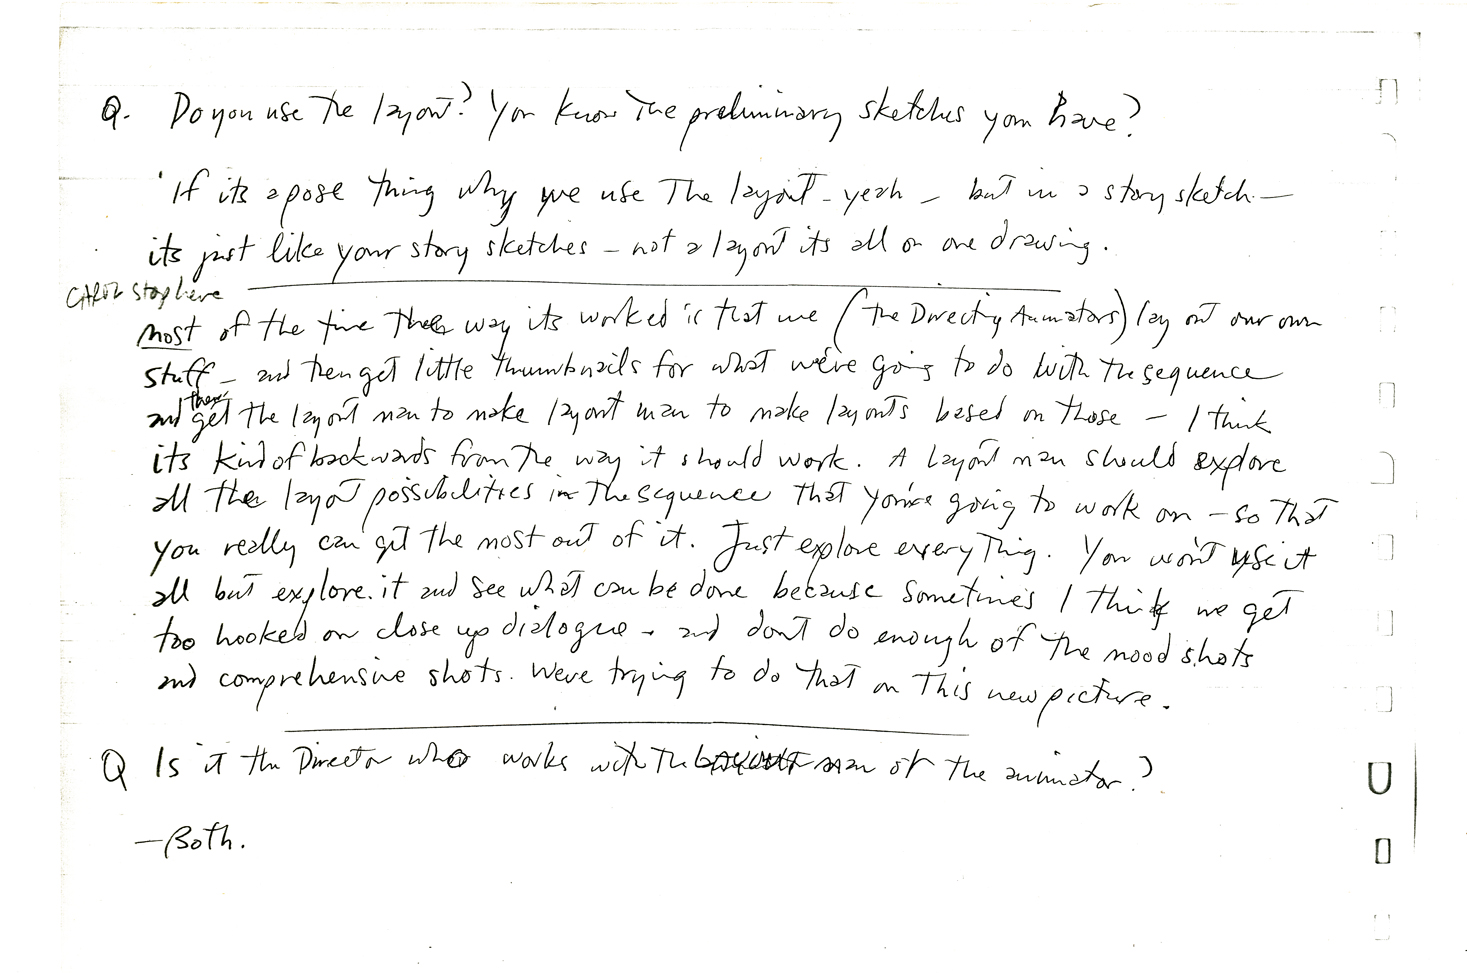 Q. Do you use the layout? You know the preliminary sketches you have?
'If its a pose thing why we use The layout - yeah - but in a story sketch -
its just like your story sketches - not a layout its all on one drawing.
CAROL Stop here
Most of the time the way its worked is that we (the Directing Animators) lay out our own
stuff - and then get little thumbnails for what we're going to do with the sequence
and then get the layout man to make layout man to make layouts based on those - I think
its kind of backwards from the way it should work. A layout man should explore
all the layout possibilities in the sequence that you're going to work on - so that
you really can get the most out of it. Just explore everything. You won't use it
all but explore it and see what can be done because sometimes I think we get
too hooked on close up dialogue - and don't do enough of the mood shots
and comprehensive shots. We're trying to do that on this new picture.
Q Is it the Director who works with the layout man or the animator?
- Both.